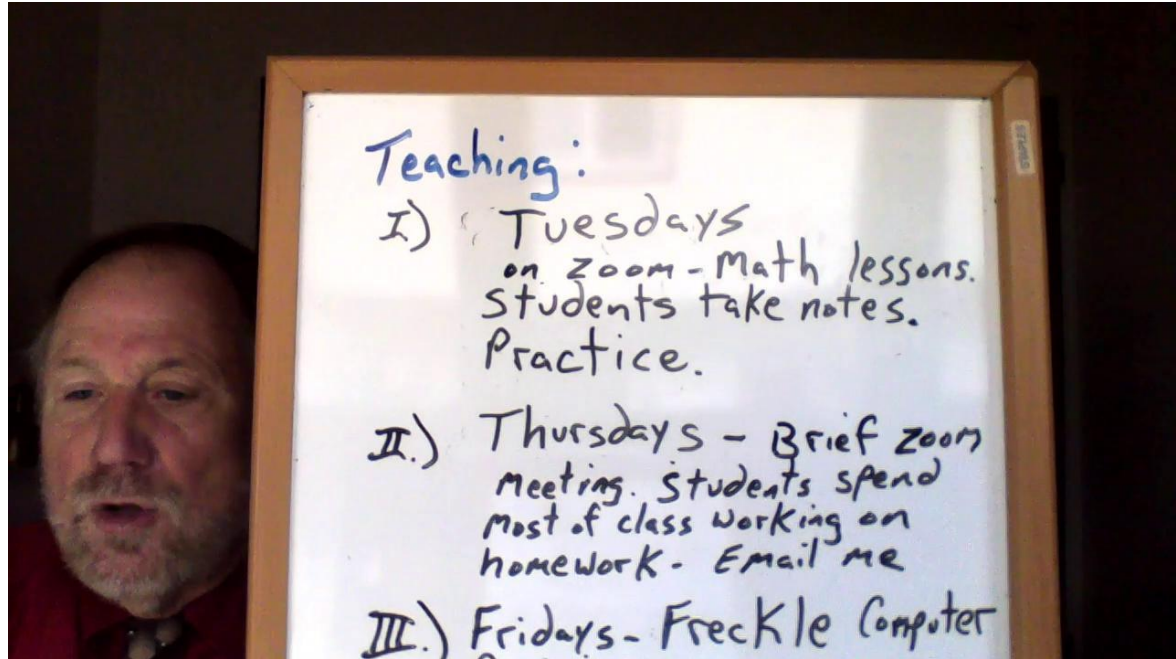 Teaching:
I) Tuesdays
on Zoom - Math lessons.
Students take notes.
Practice.
II.) Thursdays - Brief Zoom
Meeting. Students spend
most of class working on
homework - Email me
III.) Fridays - Freckle Computer